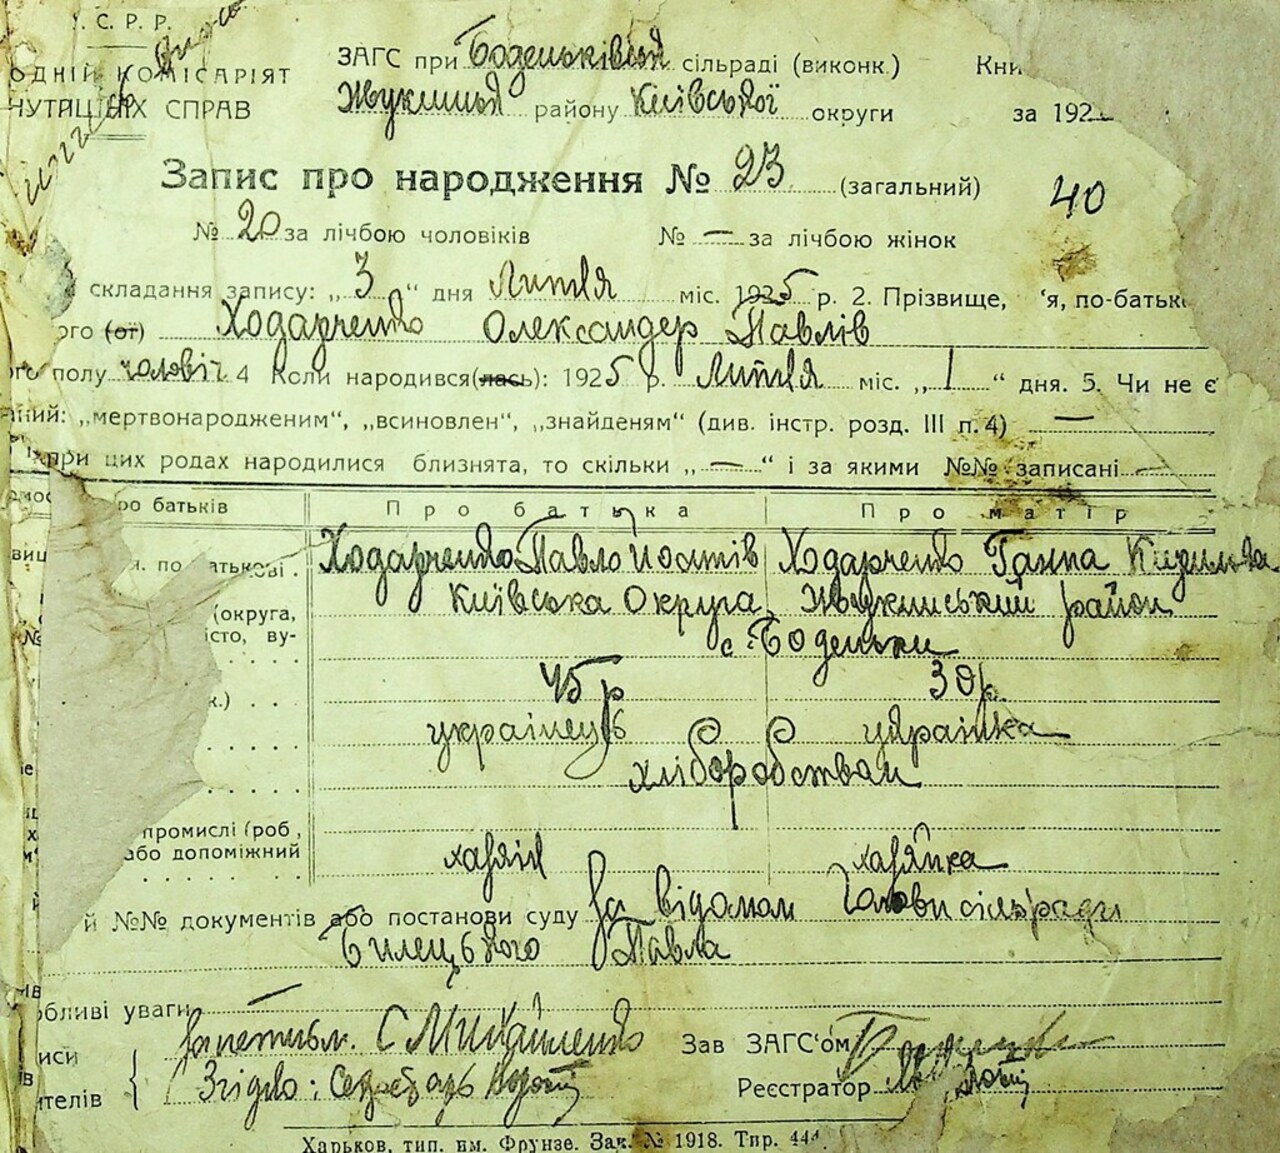 С. Р. Р.
ОДНІЙ КОМІСАРІЯТ
НУТРІШНІХ СПРАВ
ЗАГС при Боденьківській сільраді (виконк.) Кни
Жукинськ району Київської округи за 192
Запис про народження № 23 (загальний) 40
№ 20 за лічбою чоловіків № — за лічбою жінок
складання запису: „3“ дня Лютня міс. 1925 р. 2. Прізвище, 'я, по-батьк
ого (от) Ходарченко Олександер Павлів
го полу чоловіч 4 Коли народився(лась): 1925 р. Лютня міс. „1“ дня. 5. Чи не є
аний: „мертвонародженим“, „всиновлен“, „знайденям“ (див. інстр. розд. III п. 4) —
при цих родах народилися близнята, то скільки „—“ і за якими №№ записані —
ро батьків Про батька Про матір
по батькові Ходарченко Павло Ходарченко Ганна
(округа, Київська Округа, Жукинський район
істо, ву- с. Боденьки
к.) 45 р 30 р.
українець українка
хліборобством
промислі (роб.,
або допоміжний хазяїн хазяйка
й №№ документів або постанови суду За відомом Голови сільради
Билецького Павла
обливі уваги —
иси С Михайленко Зав ЗАГС'ом
ителів Згідно: Секретарь Реєстратор
Харьков, тип. им. Фрунзе. Зак. № 1918. Тир.